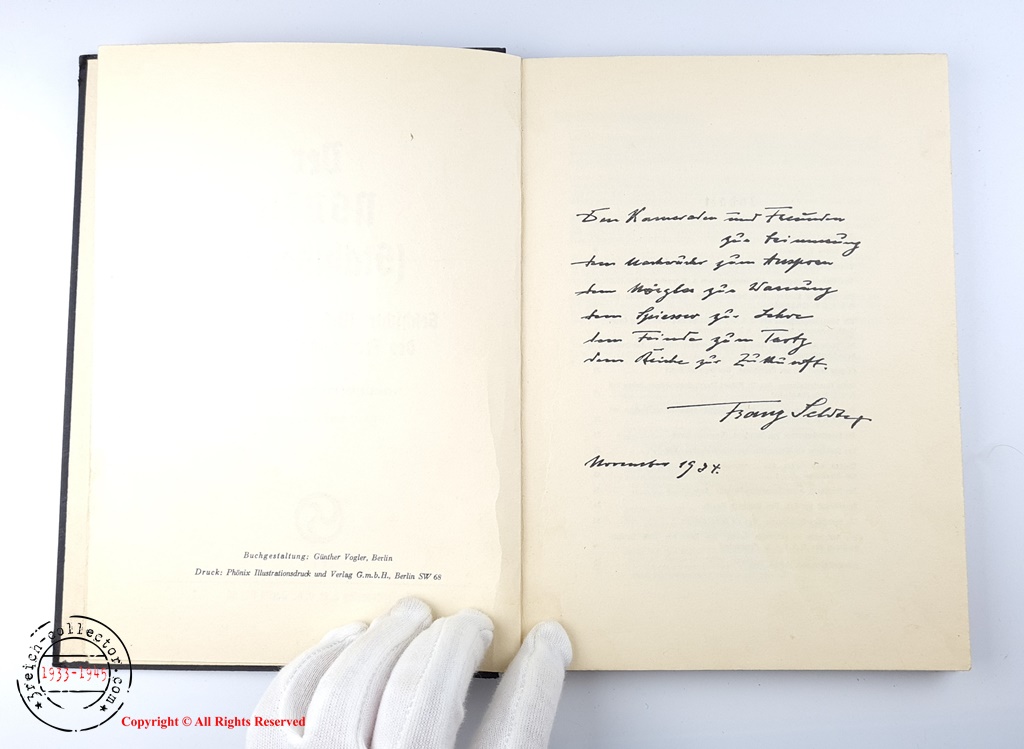 Buchgestaltung: Günther Vogler, Berlin
Druck: Phönix Illustrationsdruck und Verlag G.m.b.H., Berlin SW 68
Den Kameraden und Freunden
zur Erinnerung
dem Nachrücker zum Ansporn
dem Nörgler zur Warnung
dem Spiesser zur Lehre
dem Feinde zum Trotz
dem Reiche zur Zukunft.
Franz Seldte
November 1934.
3reich-collector.com
1933-1945
Copyright © All Rights Reserved